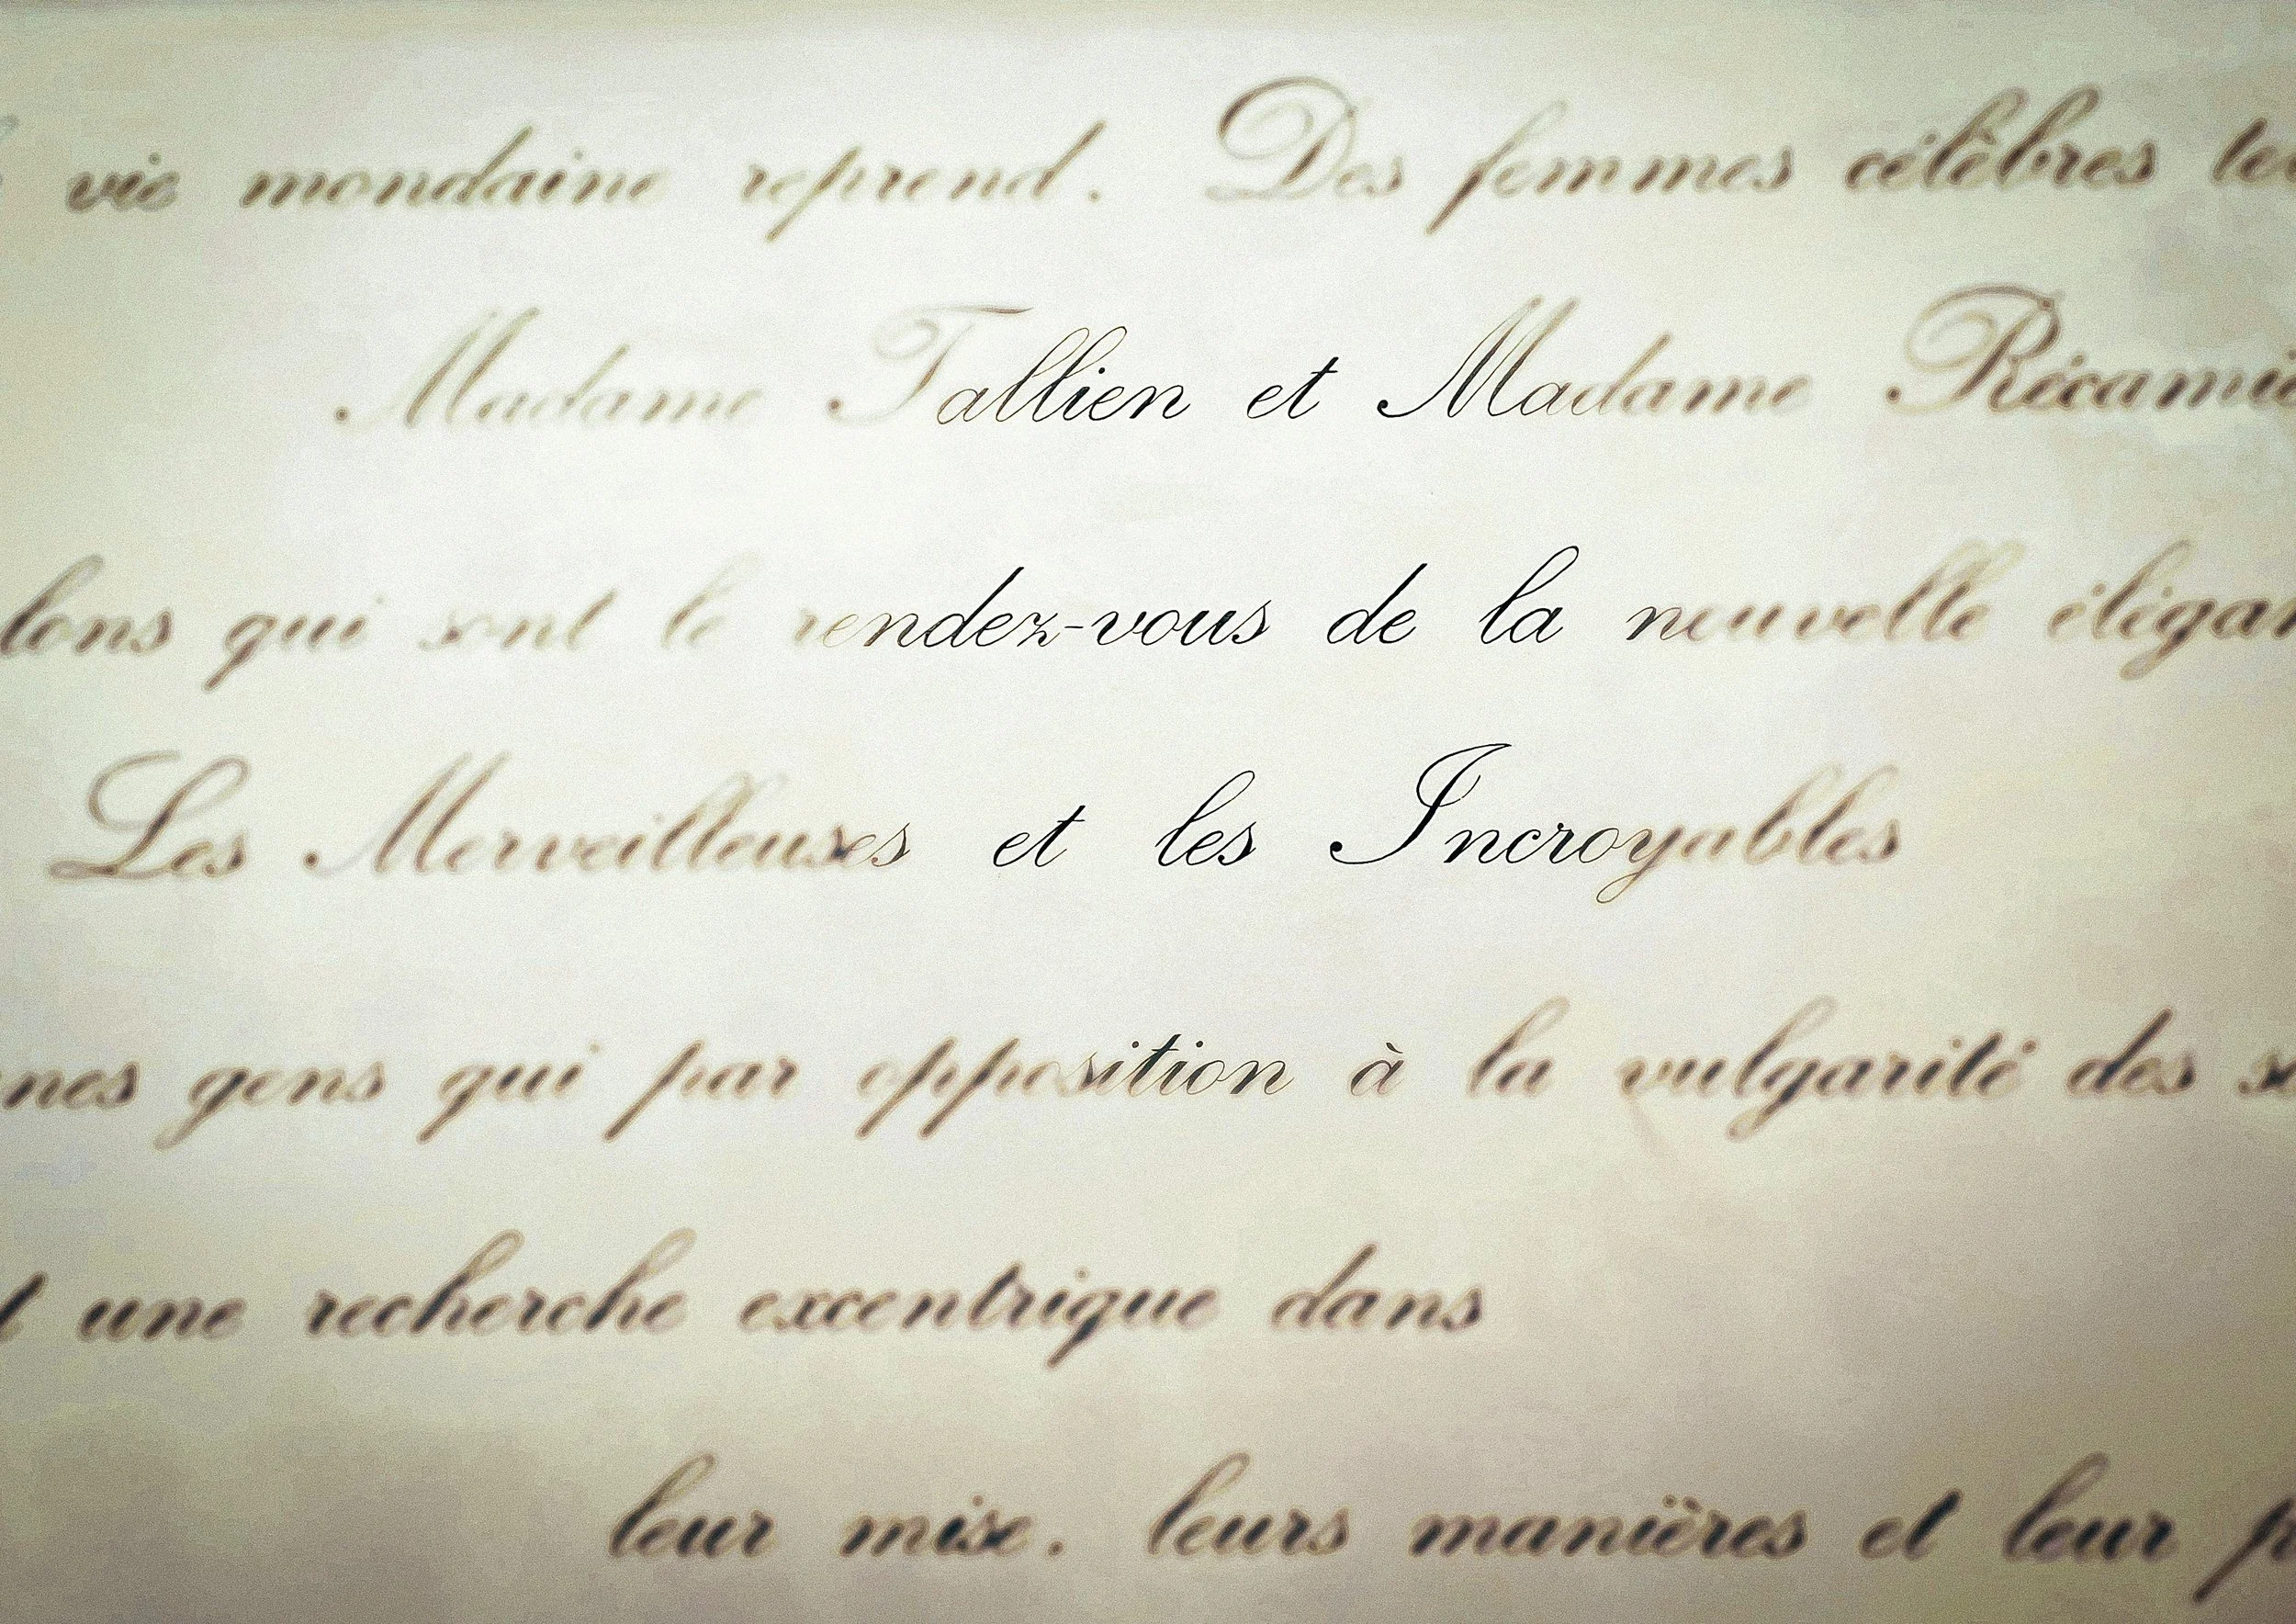 vie mondaine reprend. Des femmes célèbres
Madame Tallien et Madame Récami
lons qui sont le rendez-vous de la nouvelle élégan
Les Merveilleuses et les Incroyables
nes gens qui par opposition à la vulgarité des
une recherche excentrique dans
leur mise. leurs manières et leur